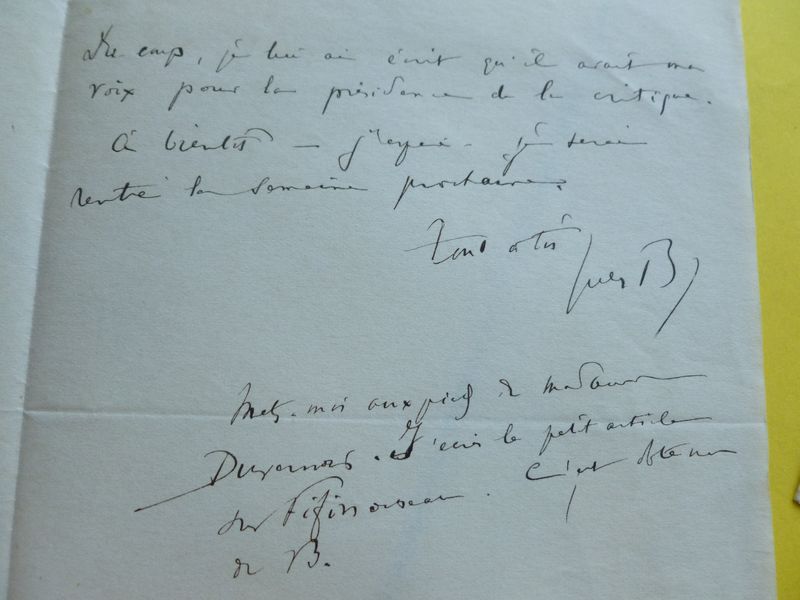 Du coup, je lui ai écrit qu'il avait ma
voix pour la présidence de la critique.
A bientôt – j'espère – je serai
rentré la semaine prochaine.
Tout à toi
Jules B
Mets-moi aux pieds de madame
Duvernois. J'écris le petit article
sur Fifinoiseau. C'est
de B.